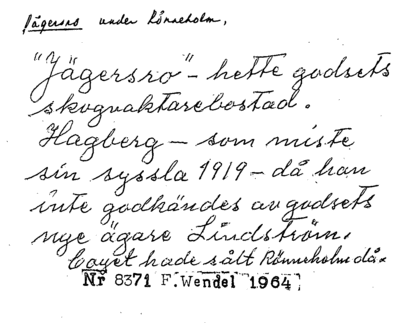 Jägersro under Rönneholm,
"Jägersro" - hette godsets
skogvaktarebostad.
Hagberg - som miste
sin syssla 1919 - då han
inte godkändes av godsets
nye ägare Lindström.
Coyet hade sålt Rönneholm då.
Nr 8371 F.Wendel 1964